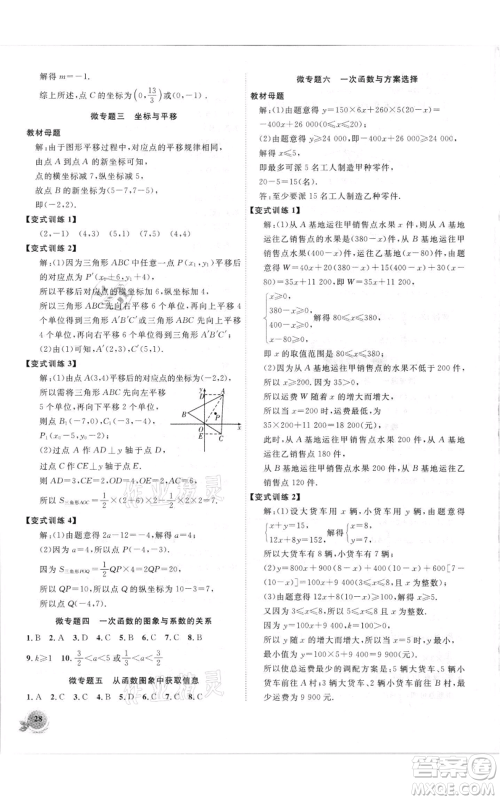 解得 m=-1.
综上所述,点 C 的坐标为(0,13/3)或(-1,0).
微专题三 坐标与平移
教材母题
解:由于图形平移过程中,对应点的平移规律相同,
由点 A 到点 A'的平移规律可知,
点的横坐标减 7,纵坐标减 2,
故点 B'的坐标为(-2,0).
【变式训练 1】
(2,-1) (4,3) (7,5) (-1,5)
【变式训练 2】
解:(1)因为三角形 ABC 中任意一点 P(x₁,y₁)平移后
的对应点为 P'(x₁+6,y₁-2),
所以平移后对应点的横坐标加 6,纵坐标减 2.
所以三角形 ABC 先向右平移 6 个单位,再向下平移
2 个单位得到三角形 A'B'C'或先向下平移 2 个单
位,再向右平移 6 个单位得到三角形 A'B'C'.
(2)由(1)可知,A'(2,2).
【变式训练 3】
解:(1)由点 A(3,4)平移后的对应点的坐标为(-2,2),
所以需将三角形 ABC 先向左平移
5 个单位,再向下平移 2 个单位,
则点 P(4,0)的对应点 P₁的坐标为
P₁(-1,-2).
(2)过点 A 作 AD⊥y 轴于点 D,
过点 C 作 CE⊥y 轴于点 E.
则AD=3,CE=4,
所以 S三角形AOC=1/2×(2+6)×2-1/2×2×2=6.
【变式训练 4】
解:(1)由题意得 2a-12=-4,解得 a=4.
(2)因为 a=4,所以 PO=1.
因为 S三角形POQ=1/2×QP×PO=1/2×QP×1=5,
所以 QP=10.所以-4+10=6.
所以点 Q 的坐标为(6,1).
微专题四 一次函数的图象与系数的关系
1. B 2. A 3. D 4. D 5. C 6. C 7. D 8. C
9. k≥1 10. 1/2<a<5 11. 1/3<a<1/2
微专题五 从函数图象中获取信息
1. A 2. C 3. A 4. B 5. C 6. C 7. C
28
微专题六 一次函数与方案选择
教材母题
解:(1)由题意可得 y=150×6x+260×5(20-x)=
-400x+26 000(0≤x≤20).
(2)由题意可知 y≥24 000,则-400x+26 000≥24 000,
解得 x≤5.
所以至多派 5 名工人制造甲种零件,
20-5=15(名).
答:至少要派 15 名工人制造乙种零件才合适.
【变式训练 1】
解:(1)因为从 A 基地运往甲销售点水果 x 件,
则从 A 基地运往乙销售点水果(380-x)件,从 B 基
地运往甲销售点水果(400-x)件,运往乙基地(x-80)件.
由题意得 W=40x+20(380-x)+15(400-x)+30(x
-80)=35x+11 200.
x≥0,
380-x≥0,
400-x≥0,
x-80≥0,
解得 80≤x≤380.
所以 x 的取值范围是 80≤x≤380.
(2)因为从 A 地运往甲销售点的水果不低于 200 件,
所以 x≥200.因为 35>0,
所以运费 W 随着 x 的增大而增大.
所以当 x=200 时,运费最低,为
35×200+11 200=18 200(元).
此时,从 A 基地运往甲销售点水果 200 件,
从 A 基地运往乙销售点水果 180 件,
从 B 基地运往甲销售点水果 200 件,运往乙基地
销售点 120 件.
【变式训练 2】
解:(1)设大货车用 x 辆,小货车用 y 辆,
根据题意得
x+y=15,
12x+8y=152,
解得
x=8,
y=7.
所以大货车 8 辆,小货车用 7 辆.
(2)y=800x+900(8-x)+400(10-x)+600[7-
(10-x)]=100x+9 400(3≤x≤8,且 x 为整数).
(3)由题意得 12x+8(10-x)≥100,解得 x≥5.
又因为 3≤x≤8,
所以 5≤x≤8 且为整数.
因为 y=100x+9 400,
k=100>0,y 随 x 的增大而增大,
所以当 x=5 时,y 最小,
最小值为 y=100×5+9 400=9 900(元).
所以使总运费最少的调配方案是:5 辆大货车、5 辆
小货车前往 A 村;3 辆大货车、2 辆小货车前往 B
村.最少运费为 9 900 元.